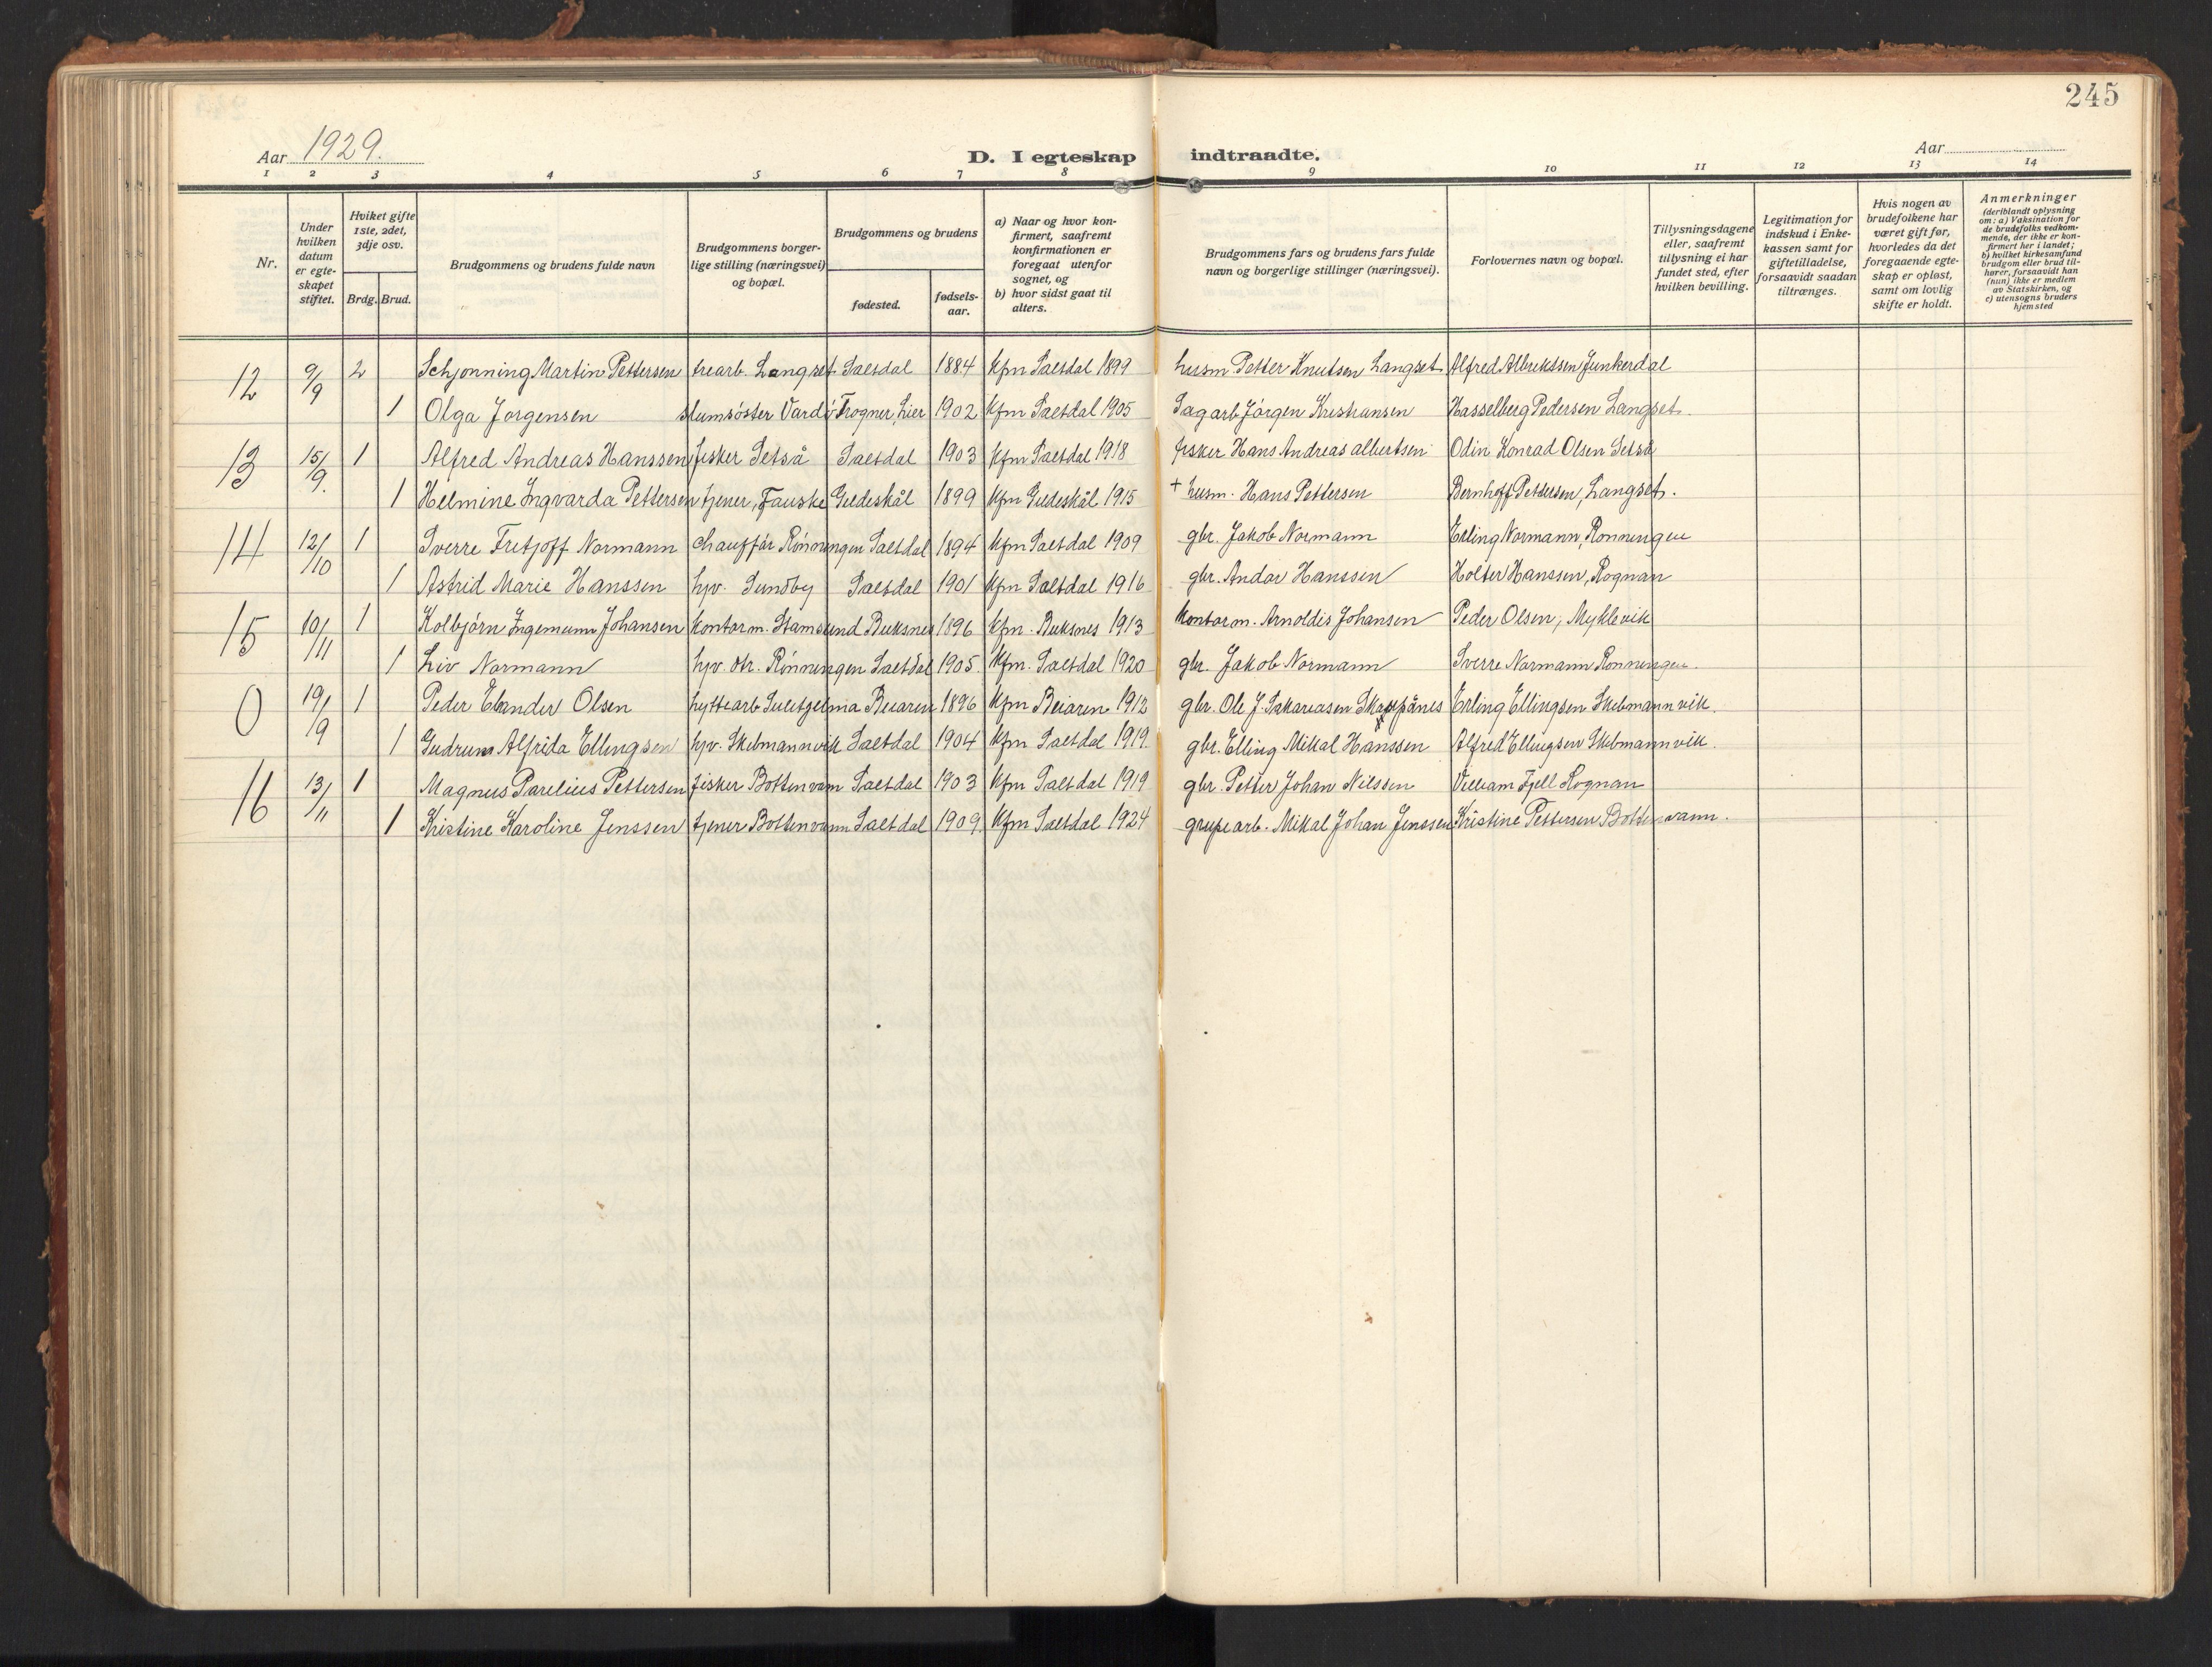 245
Aar 1929.
D. I egteskap indtraadte.
Aar
1 2 3 4 5 6 7 8 9 10 11 12 13 14
Nr.
Under hvilken datum er egte-skapet stiftet.
Hviket gifte 1ste, 2det, 3dje osv.
Brdg. Brud.
Brudgommens og brudens fulde navn
Brudgommens borger-lige stilling (næringsvei) og bopæl.
Brudgommens og brudens
fødested.
fødsels-aar.
a) Naar og hvor kon-firmert, saafremt konfirmationen er foregaat utenfor sognet, og
b) hvor sidst gaat til alters.
Brudgommens fars og brudens fars fulde navn og borgerlige stillinger (næringsvei).
Forlovernes navn og bopæl.
Tillysningsdagene eller, saafremt tillysning ei har fundet sted, efter hvilken bevilling.
Legitimation for indskud i Enke-kassen samt for giftetilladelse, forsaavidt saadan tiltrænges.
Hvis nogen av brudefolkene har været gift før, hvorledes da det foregaaende egte-skap er opløst, samt om lovlig skifte er holdt.
Anmerkninger (deriblandt oplysning om: a) Vaksination for de brudefolks vedkom-mende, der ikke er kon-firmert her i landet; b) hvilket kirkesamfund brudgom eller brud til-hører, forsaavidt han (hun) ikke er medlem av Statskirken, og c) utensogns bruders hjemsted
12 9/9 2 Schjønning Martin Pettersen trearb. Langset Saltdal 1884 Kfm Saltdal 1899 husm Petter Knutsen Langset Alfred Albrektssen Junkerdal
1 Olga Jørgensen slumsøster Vardø Frogner, Lier 1902 Kfm Saltdal 1905 Sagarb Jørgen Kristiansen Hasselberg Pedersen Langset.
13 15/9. 1 Alfred Andreas Hanssen fisker Setså Saltdal 1903 Kfm Saltdal 1918 fisker Hans Andreas Albertsen Odin Konrad Olsen Setså
1 Helmine Ingvarda Pettersen tjener, Fauske Gildeskål 1899 Kfm Gildeskål 1915 + husm. Hans Pettersen Bernhoff Pettersen, Langset.
14 12/10 1 Sverre Fritjoff Normann chauffør Rønningen Saltdal 1894 Kfm Saltdal 1909 gbr. Jakob Normann Erling Normann, Rønningen
1 Astrid Marie Hanssen hjv. Sundby Saltdal 1901 Kfm Saltdal 1916 gbr. Andor Hanssen Holter Hanssen, Rognan
15 10/11 1 Kolbjørn Ingemunn Johansen kontorm. Stamsund Buksnes 1896 Kfm. Buksnes 1913 kontorm. Arnoldis Johansen Peder Olsen, Myklevik
1 Liv Normann hjv. dtr. Rønningen Saltdal 1905. Kfm. Saltdal 1920 gbr. Jakob Normann Sverre Normann Rønningen.
0 19/9 1 Peder Olsen hyttearb Sulitjelma Beiaren 1896 Kfm Beiaren 1912 gbr. Ole J. Sakariasen Erling Ellingsen Skebmannvik.
1 Gudrun Alfrida Ellingsen hjv. Skebmannvik Saltdal 1904 Kfm Saltdal 1919. gbr. Elling Mikal Hanssen Alfred Ellingsen Skebmannvik.
16 13/11 1 Magnus Parelius Pettersen fisker Bottenvann Saltdal 1903 Kfm Saltdal 1919 gbr. Petter Johan Nilssen William Fjell Rognan
1 Kristine Karoline Jenssen tjener Bottenvann Saltdal 1909 Kfm Saltdal 1924 grubearb. Mikal Johan Jenssen Kristine Pettersen Bottenvann.